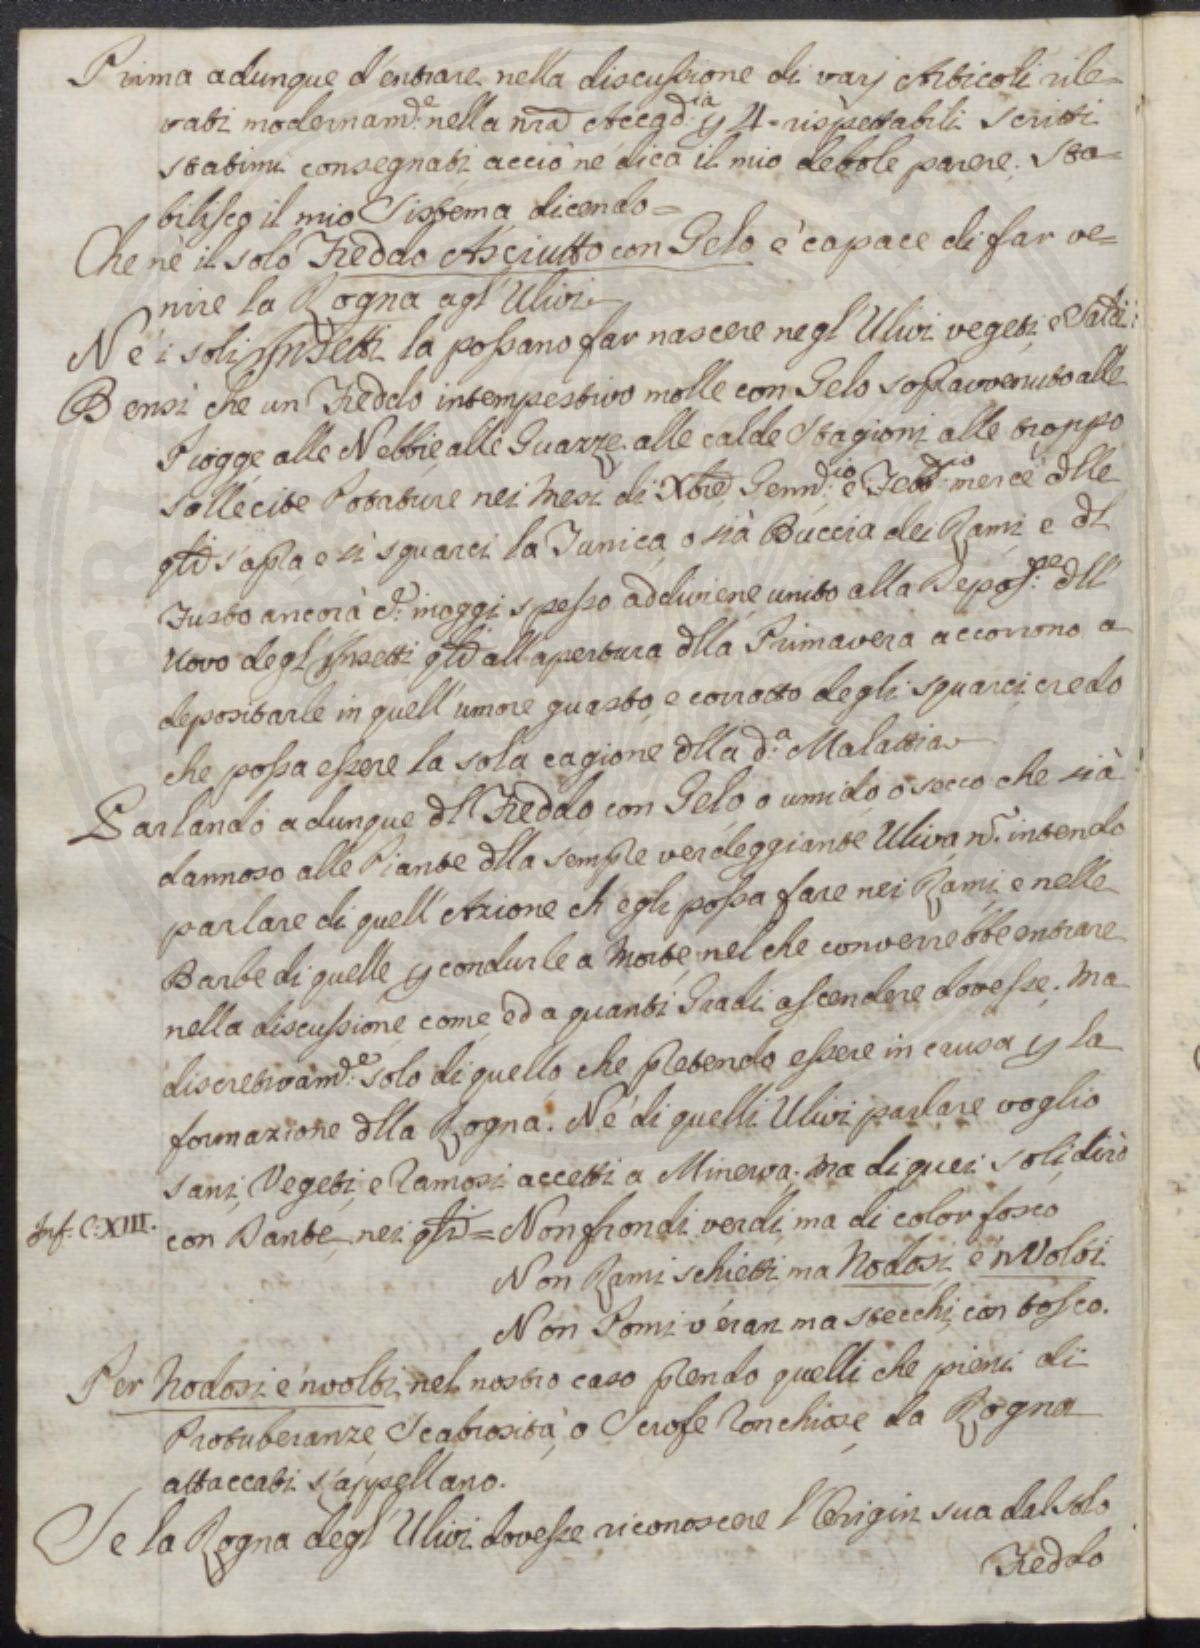 Prima adunque d'entrare nella discussione di varj Articoli rile=
vati modernam.e nella nra Accad.ia p 4 rispettabili Scritti
statimi consegnati acciò ne dica il mio debole parere: Sta=
bilisco il mio Sistema dicendo=
Che nè il solo Freddo Asciutto con Gelo è capace di far ve=
nire la Rogna agl'Ulivi
Nè i soli Insetti la possano far nascere negl'Ulivi vegeti, e Saldi:
Bensì che un Freddo intempestivo molle con Gelo sopravvenuto alle
Piogge alle Nebbie alle Guazze alle calde Stagioni alle troppo
sollecite Potature nei Mesi di Xbre Genn.io e Febb.io mercè dlle
qli s'apra e si squarci la Tunica o sia Buccia dei Rami e dl
Fusto ancora c.e inoggi spesso addiviene unito alla Depos.ne dll'
Uovo degl'Insetti qli all'apertura dlla Primavera accorrono a
depositarle in quell'umore guasto e corrotto degli squarci credo
che possa essere la sola cagione dlla d.a Malattia
Parlando adunque dl Freddo con Gelo o umido o secco che sia
dannoso alle Piante dlla sempre verdeggiante Uliva n. intendo
parlare di quell'Azione ch'egli possa fare nei Rami e nelle
Barbe di quelle p condurle a Morte nel che converrebbe entrare
nella discussione come ed a quanti Gradi ascendere dovesse. Ma
discretivam.e solo di quello che pretendo essere in causa p la
formazione dlla Rogna. Nè di quelli Ulivi parlare voglio
sani, Vegeti, e ramosi accetti a Minerva: Ma di quei soli dirò
Inf. C. XIII.
con Dante nei qli= Non frondi verdi ma di color fosco
Non Rami schietti ma Nodosi e 'nVolti
Non Pomi v'eran ma stecchi con tosco.
Per Nodosi e 'nvolti nel nostro caso prendo quelli che pieni di
Protuberanze Scabrosità o Scrofe ronchiose da Rogna
attaccati s'appellano.
Se la Rogna degl'Ulivi dovesse riconoscere l'Origin sua dal solo
Freddo